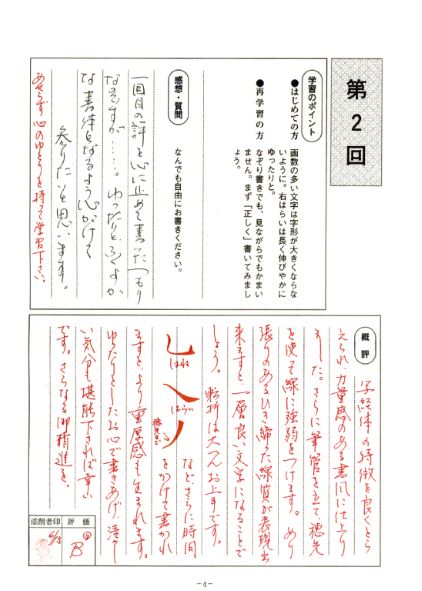 第2回
学習のポイント
●はじめての方　画数の多い文字は字形が大きくならな
いように。右はらいは長く伸びやかに
ゆったりと。
●再学習の方　なぞり書きでも、見ながらでもかまい
ません。まず「正しく」書いてみまし
ょう。
感想・質問　なんでも自由にお書きください。
一回目の評を心に止めて書いたつもり
なのですが……。ゆったりと
な書体となるよう心がけて
参りたいと思います。
あせらず心のゆとりを持って学習下さい。
概評
写経体の特徴を良くとら
えられ力量感のある書風に仕上り
ました。さらに筆管を立て穂先
を使って線に強弱をつけます。
張りのあるひき締った線質が表現出
来ますと、一層良い文字になることで
しょう。転折は大へんお上手です。
はね
はらい
などさらに時間
をかけて書かれ
ますとより重厚感も生まれます。
ゆったりとしたお心で書きあげ、清々し
い気分も堪能下されば幸い
です。さらなる御精進を。
評価
B
添削者印
－4－